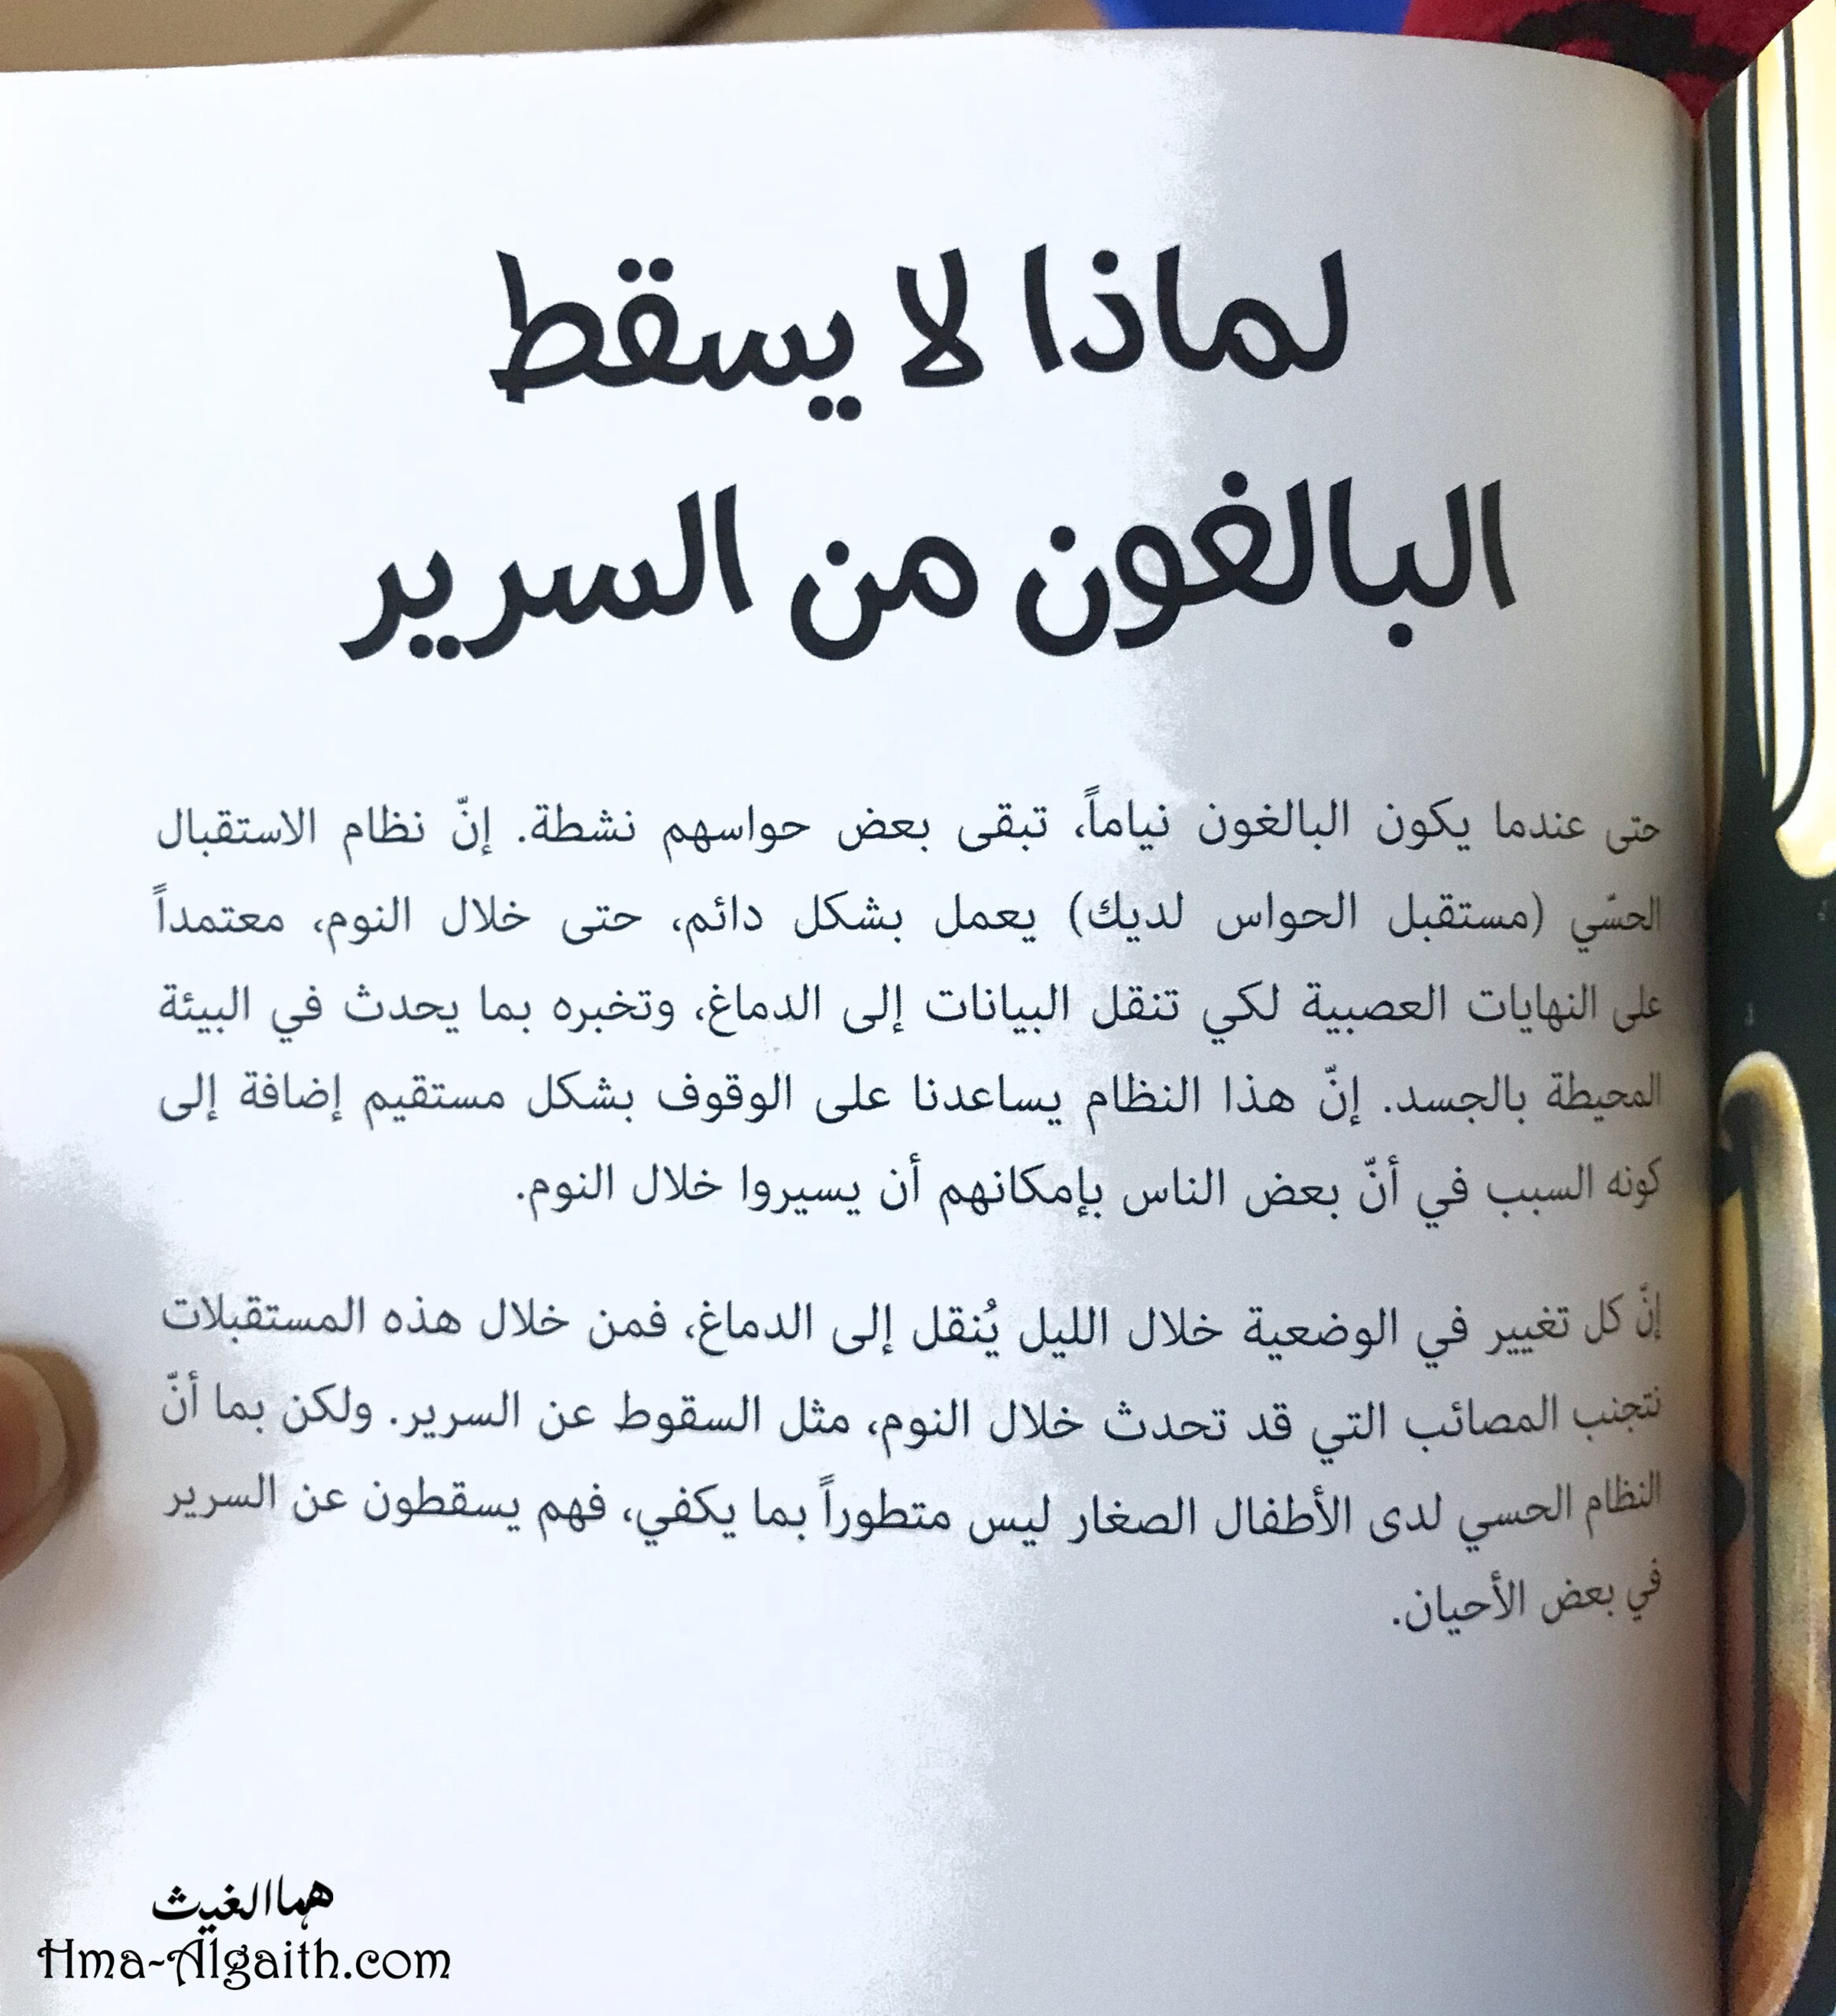 لماذا لا يسقط
البالغون من السرير
حتى عندما يكون البالغون نياماً، تبقى بعض حواسهم نشطة. إنّ نظام الاستقبال
الحسّي (مستقبل الحواس لديك) يعمل بشكل دائم، حتى خلال النوم، معتمداً
على النهايات العصبية لكي تنقل البيانات إلى الدماغ، وتخبره بما يحدث في البيئة
المحيطة بالجسد. إنّ هذا النظام يساعدنا على الوقوف بشكل مستقيم إضافة إلى
كونه السبب في أنّ بعض الناس بإمكانهم أن يسيروا خلال النوم.
إنّ كل تغيير في الوضعية خلال الليل يُنقل إلى الدماغ، فمن خلال هذه المستقبلات
نتجنب المصائب التي قد تحدث خلال النوم، مثل السقوط عن السرير. ولكن بما أنّ
النظام الحسي لدى الأطفال الصغار ليس متطوراً بما يكفي، فهم يسقطون عن السرير
في بعض الأحيان.
هما الغيث
Hma-Algaith.com